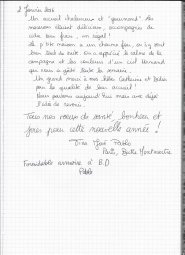 2 Janvier 2016
Un accueil chaleureux et "gourmand". Les
maisons étaient délicieux, accompagnés de
cidre bien frais, un régal !
La p'tite maison a un charme fou, on s'y sent
bien tout de suite. On a apprécié le calme de la
campagne et les couleurs d'un ciel Normand
qui nous a gâté toute la semaine.
Un grand merci à nos hôtes Catherine et Gilles
pour la qualité de leur accueil !
Nous partons aujourd'hui mais avec déjà
l'idée de revenir.
Tous nos voeux de santé, bonheur et
joies pour cette nouvelle année !
Pablo
Paris, Butte Montmartre
Formidable armoire à B.D.
Pablo